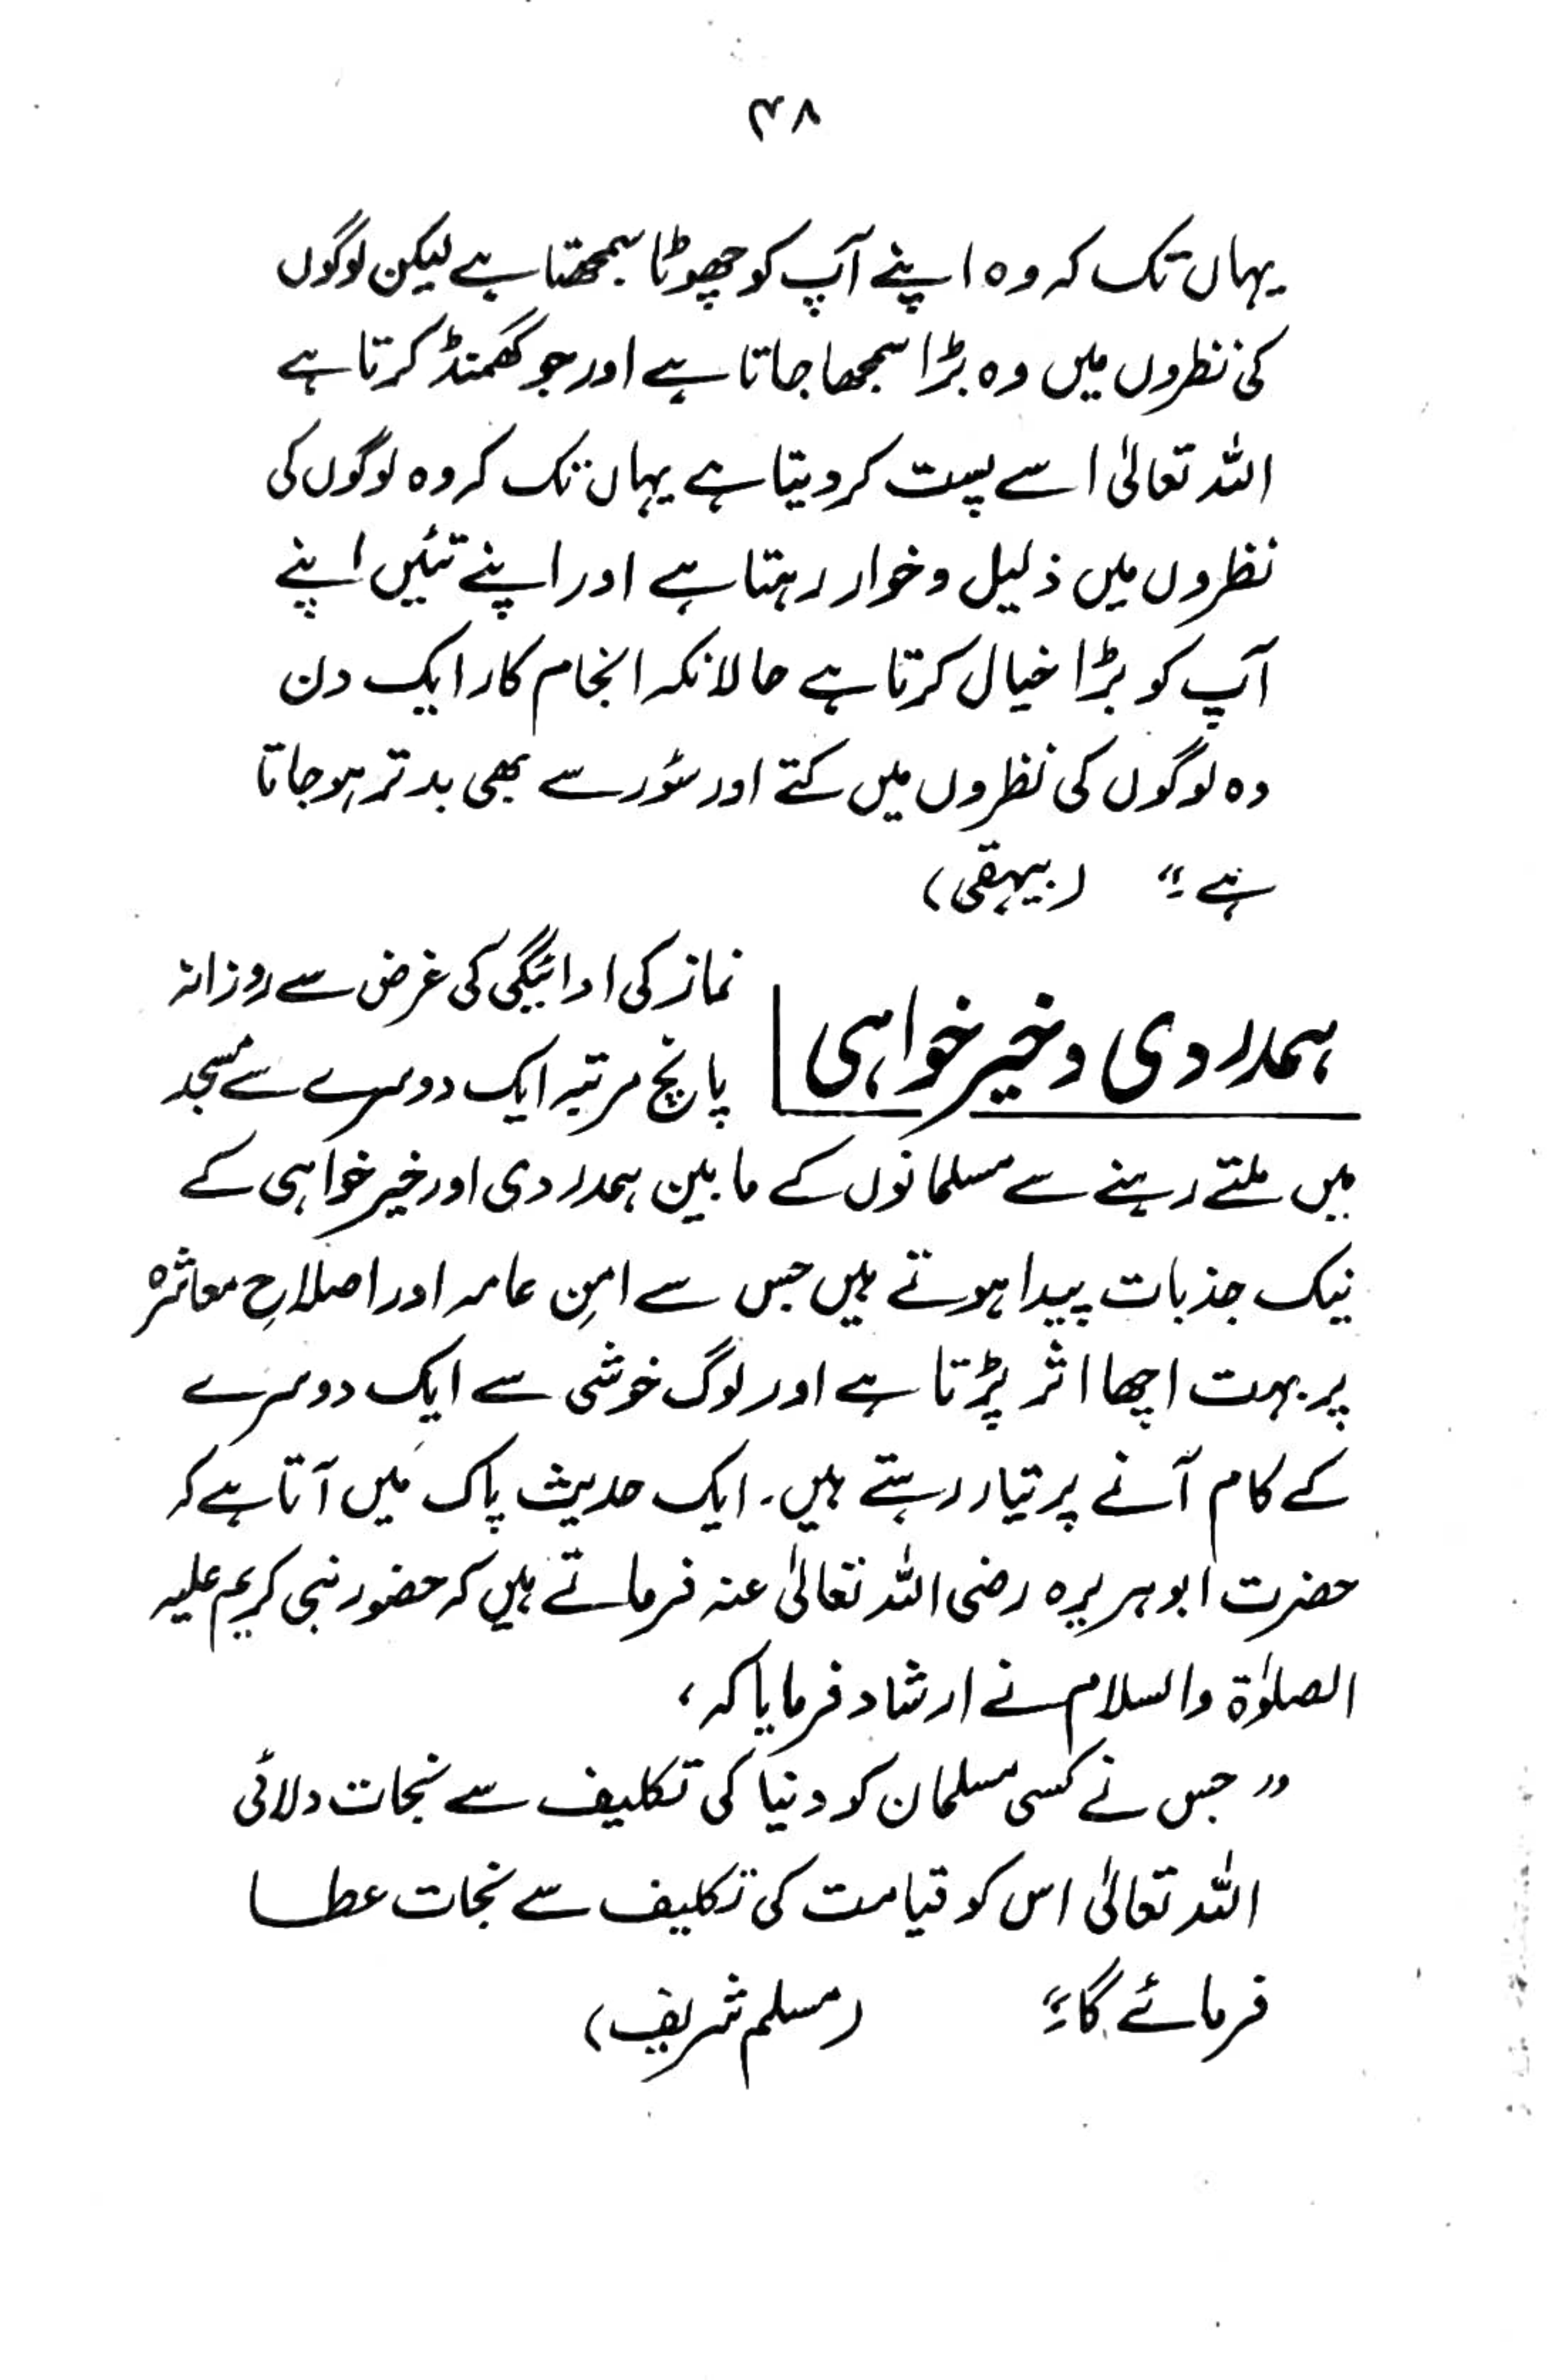 ۴۸
یہاں تک کہ وہ اپنے آپ کو چھوٹا سمجھتا ہے لیکن لوگوں
کی نظروں میں وہ بڑا سمجھا جاتا ہے اور جو گھمنڈ کرتا ہے
اللہ تعالیٰ اسے پست کر دیتا ہے یہاں تک کہ وہ لوگوں کی
نظروں میں ذلیل و خوار رہتا ہے اور اپنے تئیں اپنے
آپ کو بڑا خیال کرتا ہے حالانکہ انجام کار ایک دن
وہ لوگوں کی نظروں میں کتے اور سؤر سے بھی بدتر ہو جاتا
ہے۔“ (بیہقی)
ہمدردی و خیر خواہی
نماز کی ادائیگی کی غرض سے روزانہ
پانچ مرتبہ ایک دوسرے سے مسجد
میں ملتے رہنے سے مسلمانوں کے مابین ہمدردی اور خیر خواہی کے
نیک جذبات پیدا ہوتے ہیں جس سے امنِ عامہ اور اصلاحِ معاشرہ
پر بہت اچھا اثر پڑتا ہے اور لوگ خوشی سے ایک دوسرے
کے کام آنے پر تیار رہتے ہیں۔ ایک حدیث پاک میں آتا ہے کہ
حضرت ابوہریرہ رضی اللہ تعالیٰ عنہ فرماتے ہیں کہ حضور نبی کریم علیہ
الصلوٰۃ والسلام نے ارشاد فرمایا کہ،
”جس نے کسی مسلمان کو دنیا کی تکلیف سے نجات دلائی
اللہ تعالیٰ اس کو قیامت کی تکلیف سے نجات عطا
فرمائے گا۔“ (مسلم شریف)